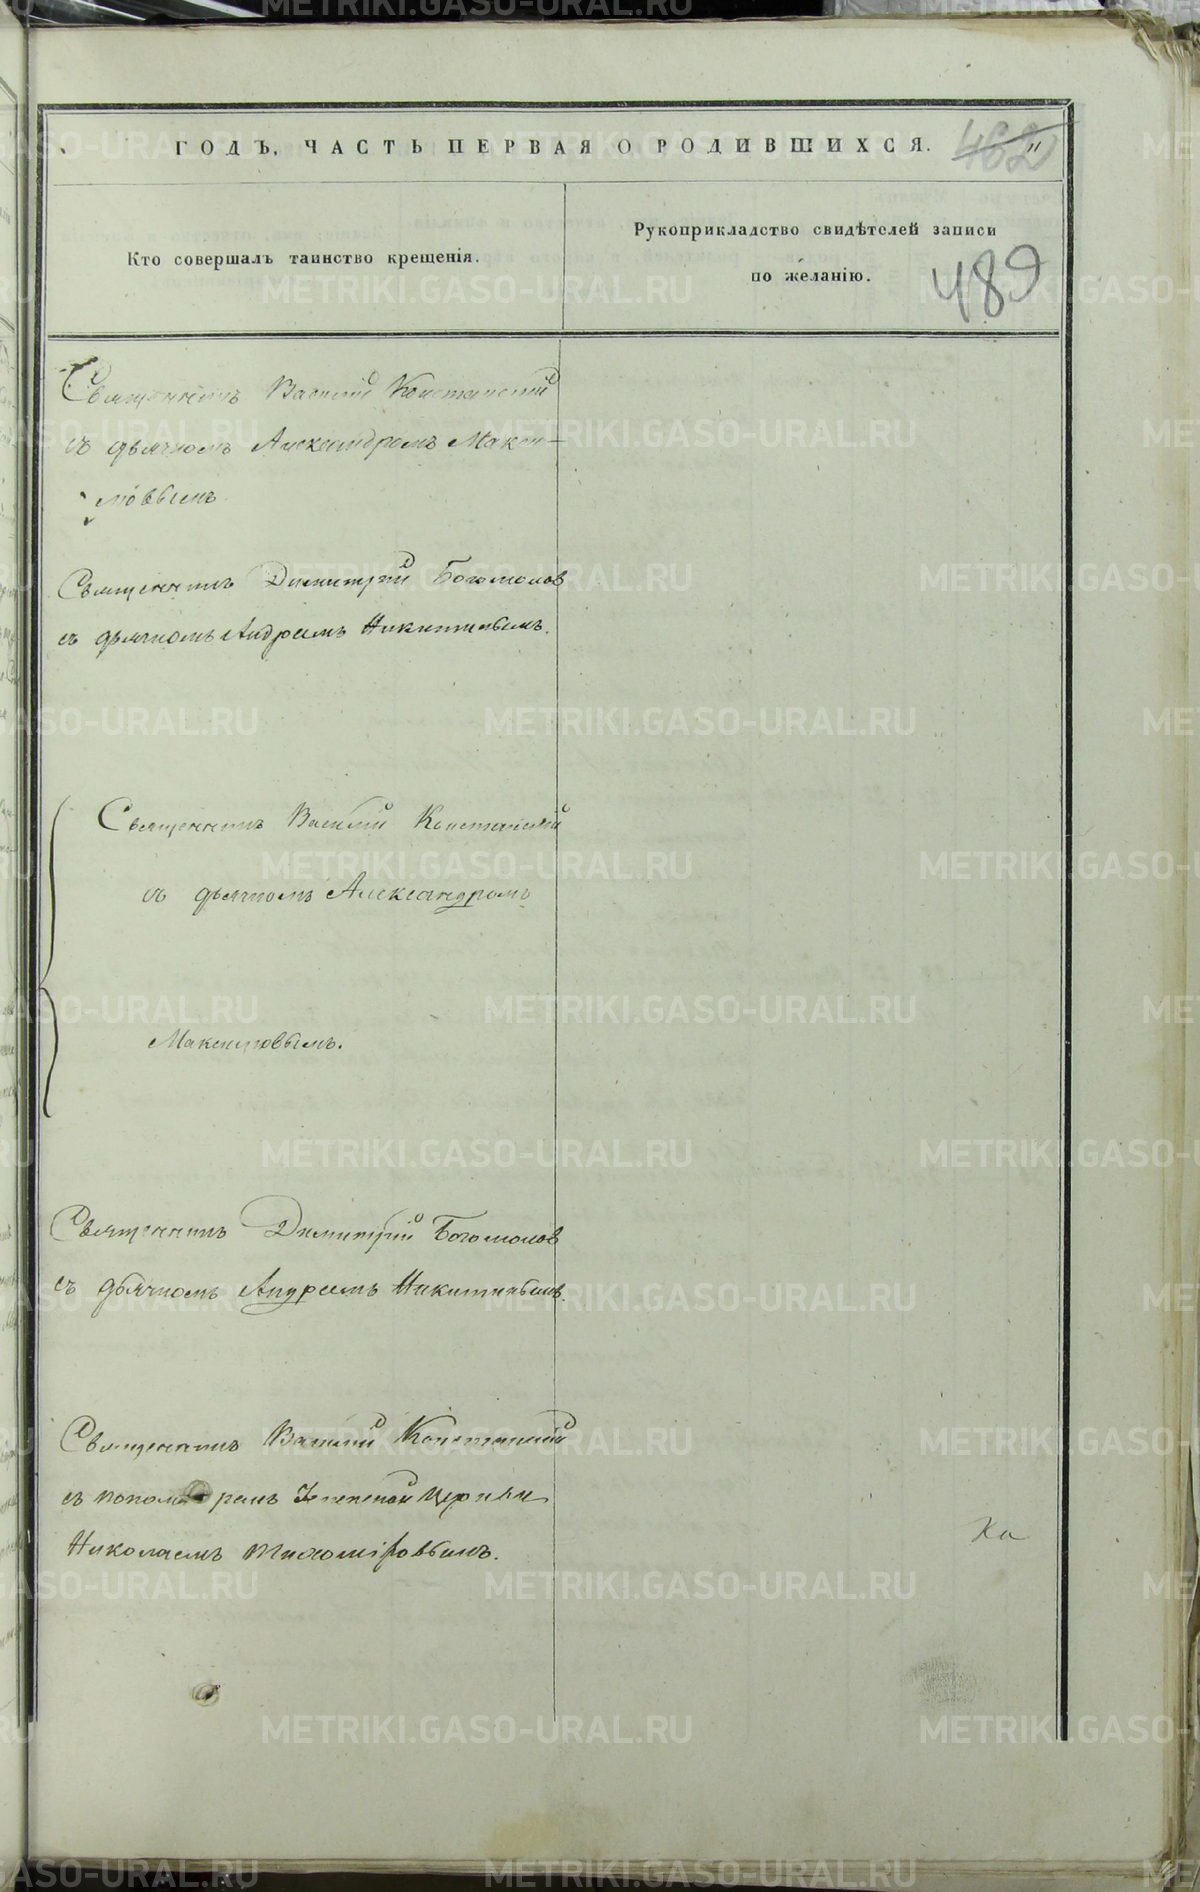 ГОДЪ, ЧАСТЬ ПЕРВАЯ О РОДИВШИХСЯ.
462
Кто совершалъ таинство крещенія.
Рукоприкладство свидѣтелей записи
по желанію.
489
Священникъ Василій Констанскій
съ дьячкомъ Александромъ Макси-
мовымъ.
Священникъ Димитрій Богомолов
съ дьячкомъ Андреемъ Никитинымъ.
Священникъ Василій Констанскій
съ дьячкомъ Александромъ
Максимовымъ.
Священникъ Димитрій Богомолов
съ дьячкомъ Андреемъ Никитинымъ.
Священникъ Василій Констанскій
съ пономаремъ церкви
Николаемъ Тихоміровымъ.
METRIKI.GASO-URAL.RU